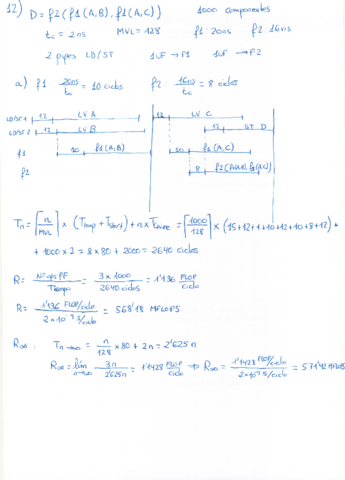 12) D = f2(f1(A,B), f1(A,C)) 1000 componentes
tc = 2ns MVL = 128 f1 20ns f2 16ns
2 pipes LD/ST 1UF → F1 1UF → F2
a) f1 20ns/tc = 10 ciclos f2 16ns/tc = 8 ciclos
LD/ST 1 12 LV A 12 LV C
LD/ST 2 12 LV B 12 ST D
f1 10 f1(A,B) 10 f1(A,C)
f2 8 f2(f1(A,B), f1(A,C))
Tn = ⌈n/MVL⌉ × (Tloop + Tstart) + n × Telem = ⌈1000/128⌉ × (15+12+1+10+12+10+8+12) +
+ 1000 × 2 = 8 × 80 + 2000 = 2640 ciclos
R = Nº ops PF/Tiempo = 3 × 1000/2640 ciclos = 1'136 FLOP/ciclo
R = 1'136 FLOP/ciclo/2×10⁻⁹ s/ciclo = 568'18 MFLOPS
R∞ : Tn→∞ = n/128 × 80 + 2n = 2'625n
R∞ = lim n→∞ 3n/2'625n = 1'1428 FLOP/ciclo ⇒ R∞ = 1'1428 FLOP/ciclo/2×10⁻⁹ s/ciclo = 571'42 MFLOPS